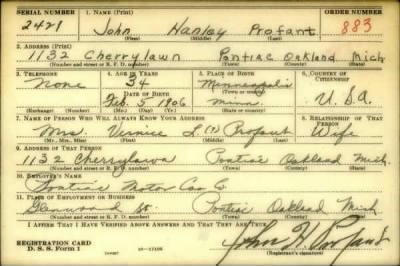 SERIAL NUMBER 1. NAME (Print) ORDER NUMBER
2421 John Hanley Profant 883
(First) (Middle) (Last)
2. ADDRESS (Print)
1132 Cherrylawn Pontiac Oakland Mich
(Number and street or R. F. D. number) (Town) (County) (State)
3. TELEPHONE 4. AGE IN YEARS 5. PLACE OF BIRTH 6. COUNTRY OF CITIZENSHIP
None 34 Minneapolis
DATE OF BIRTH (Town or county)
Feb. 5 1906 Minn. U.S.A.
(Exchange) (Number) (Mo.) (Day) (Yr.) (State or country)
7. NAME OF PERSON WHO WILL ALWAYS KNOW YOUR ADDRESS 8. RELATIONSHIP OF THAT PERSON
Mrs. Vernice L. Profant Wife
(Mr., Mrs., Miss) (First) (Middle) (Last)
9. ADDRESS OF THAT PERSON
1132 Cherrylawn Pontiac Oakland Mich.
(Number and street or R. F. D. number) (Town) (County) (State)
10. EMPLOYER'S NAME
Pontiac Motor Car Co
11. PLACE OF EMPLOYMENT OR BUSINESS
Glenwood St. Pontiac Oakland Mich
(Number and street or R. F. D. number) (Town) (County) (State)
I AFFIRM THAT I HAVE VERIFIED ABOVE ANSWERS AND THAT THEY ARE TRUE.
REGISTRATION CARD
D. S. S. Form 1 John H Profant
(Registrant's signature)